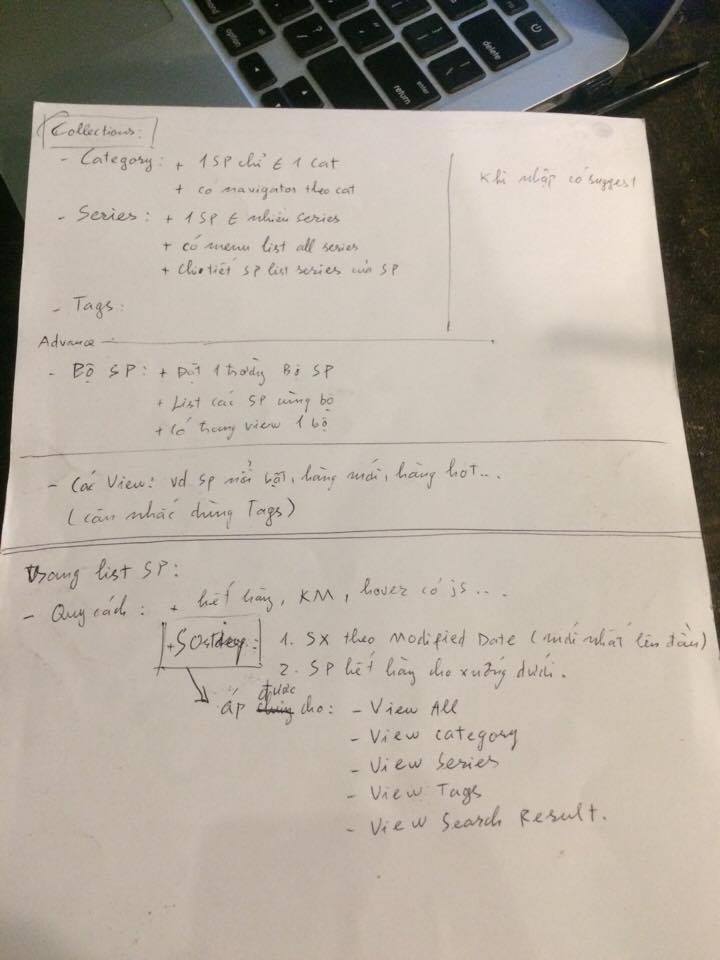 option
delete
enter
return
Collections:
- Category: + 1 SP chỉ ∈ 1 cat
+ có navigator theo cat
Khi nhập có suggest
- Series: + 1 SP ∈ nhiều series
+ có menu list all series
+ chi tiết SP list series của SP
- Tags:
Advance
- Bộ SP: + Đặt 1 trường Bộ SP
+ List các SP cùng bộ
+ Có trang view 1 bộ
- Các View: vd SP nổi bật, hàng mới, hàng hot...
(cân nhắc dùng Tags)
Trang list SP:
- Quy cách: + hết hàng, KM, hover có js...
1. SX theo Modified Date (mới nhất lên đầu)
2. SP hết hàng cho xuống dưới.
Áp được cho: - View All
- View category
- View Series
- View Tags
- View Search Result.